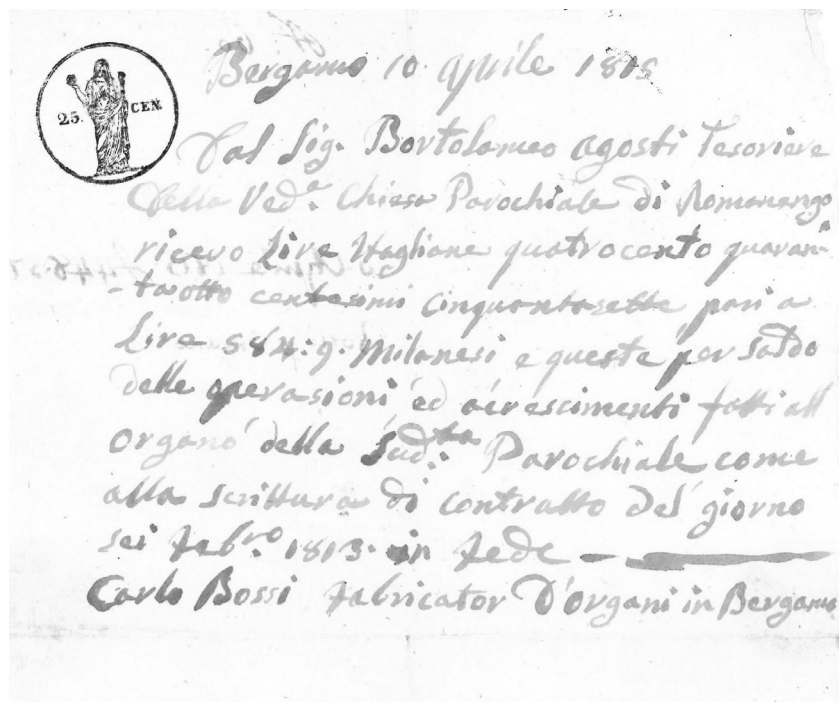 Bergamo 10 aprile 1815
25. CEN.
Dal Sig. Bortolameo agosti Tesoriere
della Ved.ᵉ Chiesa Parochiale di Romanengo
ricevo Lire Itagliane quatrocento quaran-
-taotto centesimi cinquantasette pari a
Lire 584:9. Milanesi e queste per saldo
delle operasioni ed acrescimenti fatti all
organo della Sud.ᵗᵃ Parochiale come
alla scrittura di contratto del giorno
sei febr.ʳᵒ 1813. in fede
Carlo Bossi fabricator D'organi in Bergamo